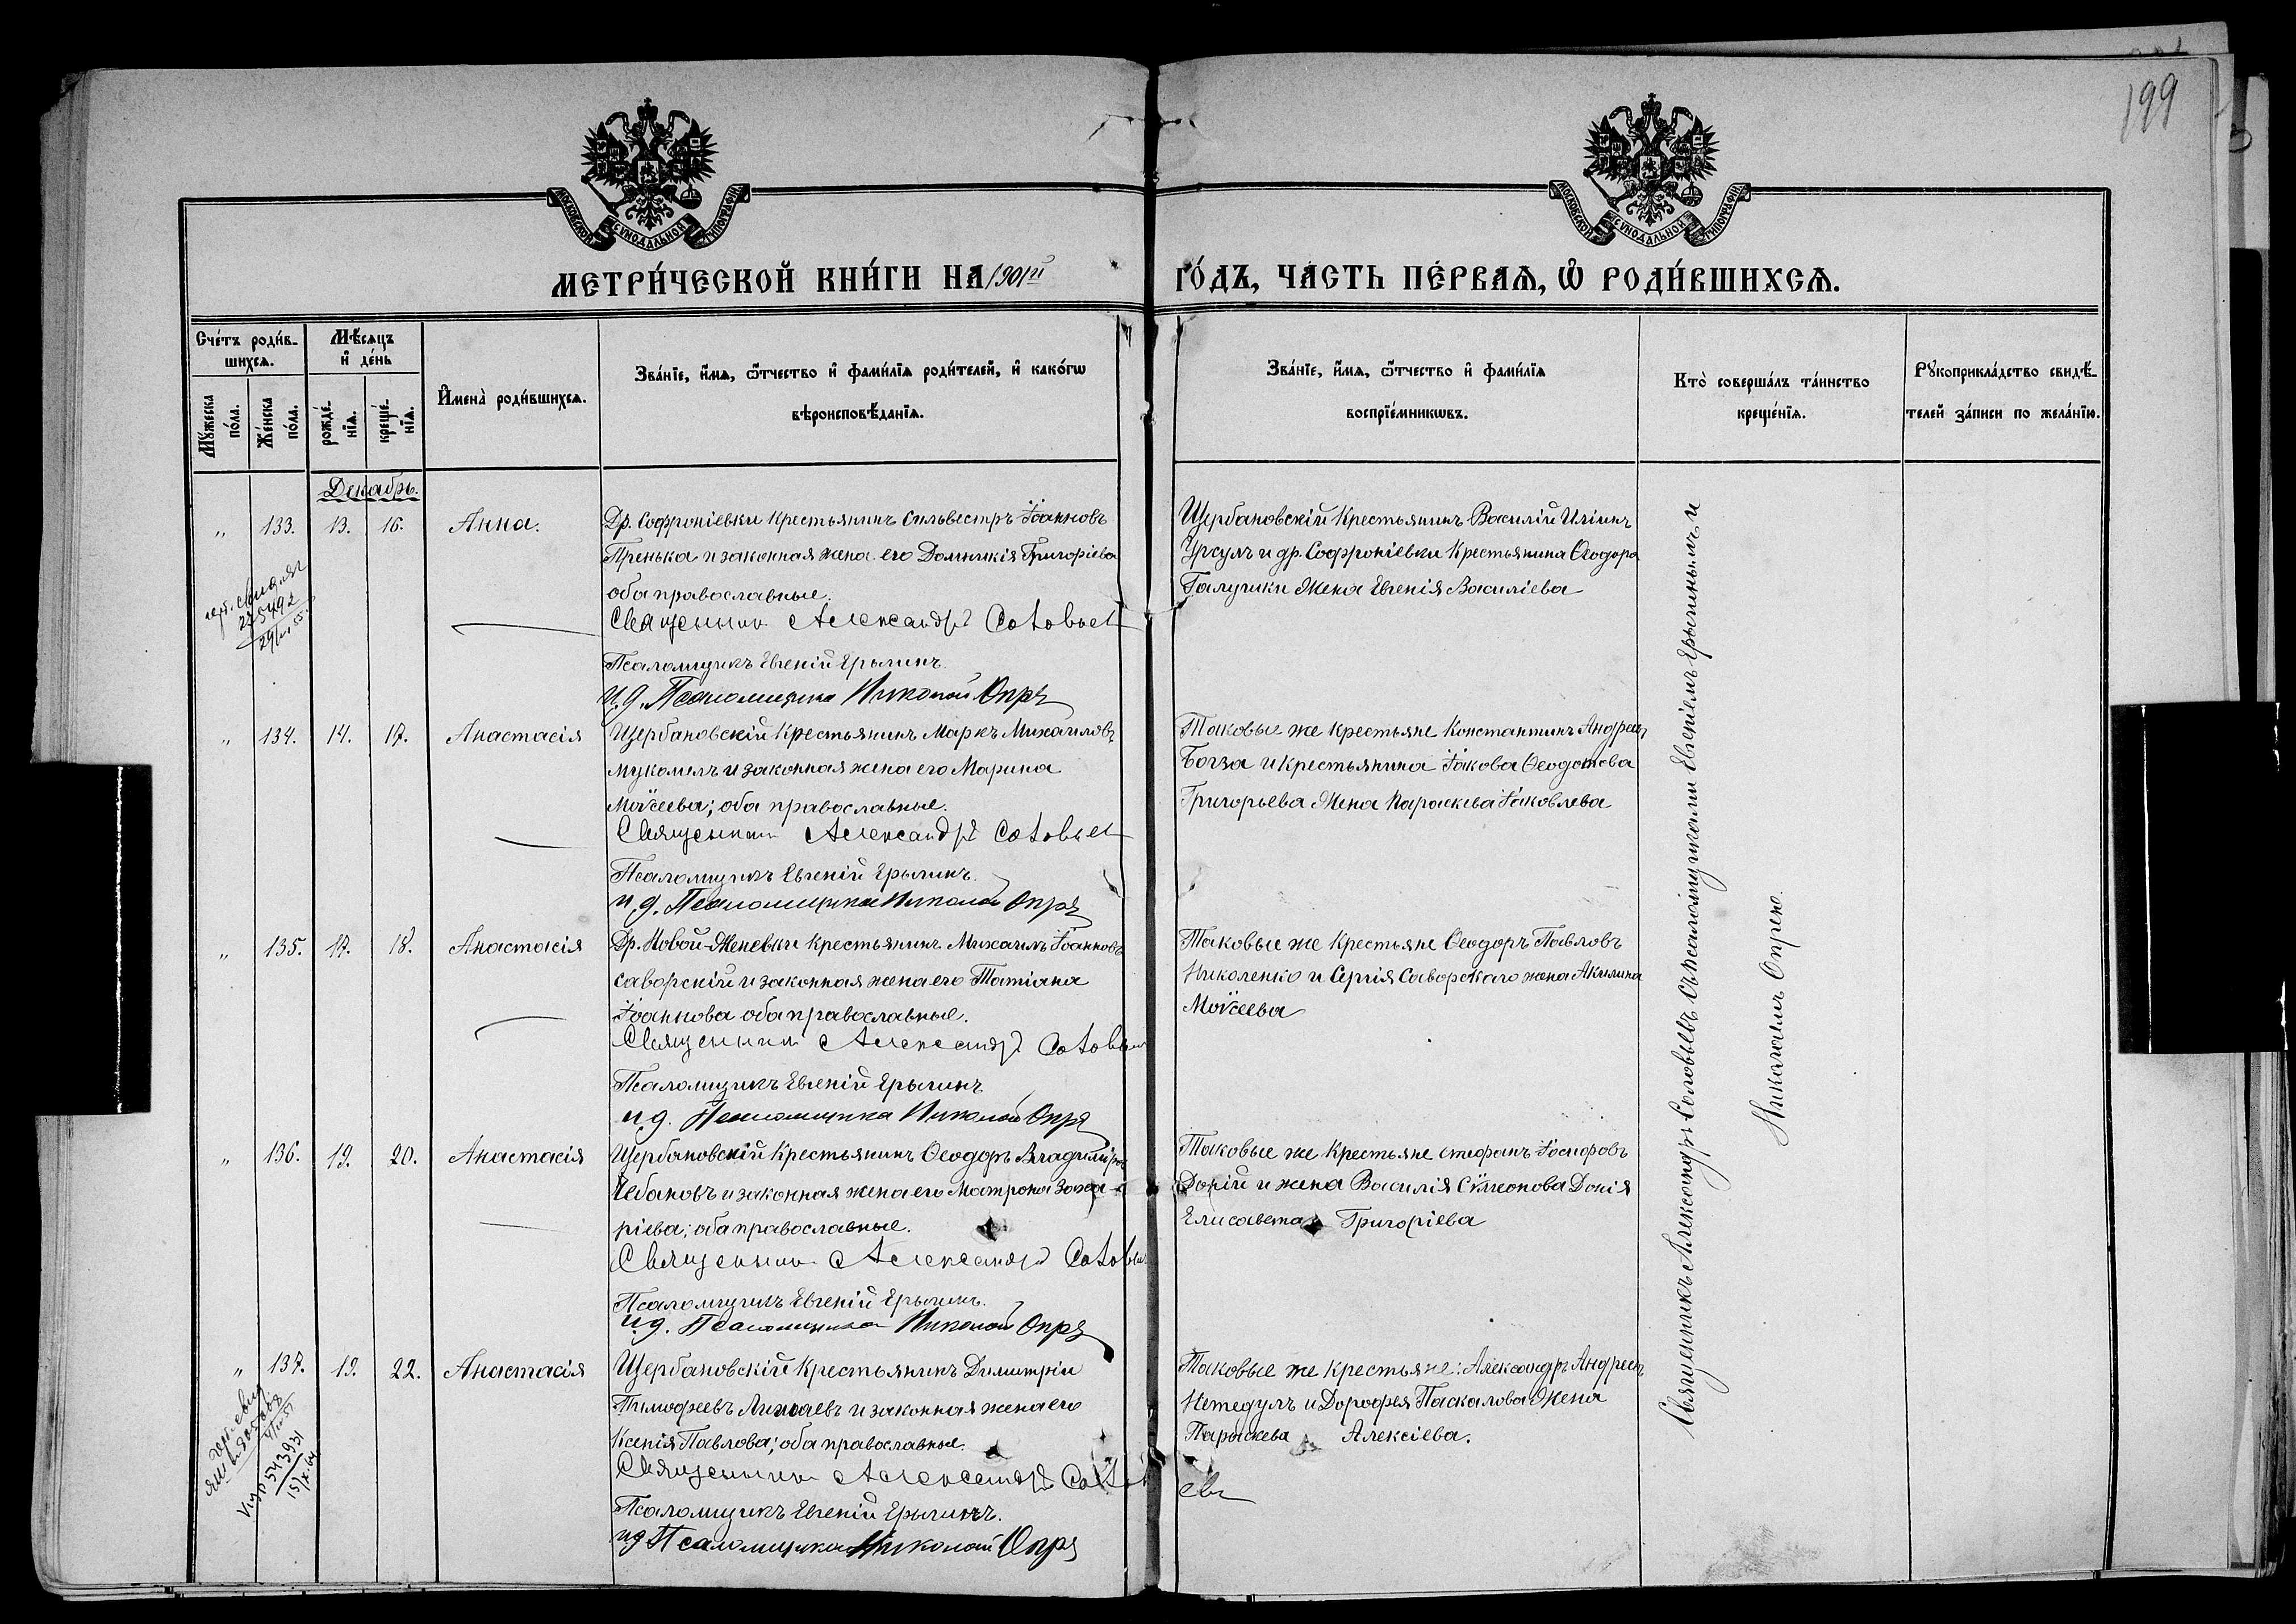 199
МОСКОВСКОЙ СѴНОДАЛЬНОЙ ТИПОГРАФІИ
МОСКОВСКОЙ СѴНОДАЛЬНОЙ ТИПОГРАФІИ
МЕТРИ́ЧЕСКОЙ КНИ́ГИ НА 1901й ГО́ДЪ, ЧА́СТЬ ПЕ́РВАЯ, Ѡ РОДИ́ВШИХСЯ.
Сче́тъ роди́в-
шихся.
Мѣ́сяцъ
и де́нь
Му́жеска
по́ла.
Же́нска
по́ла.
рожде́-
нїя.
креще́-
нїя.
Имена̀ роди́вшихся.
Зва́нїе, и́мя, ѻ́тчество и фами́лїя роди́телей, и како́гѡ
вѣроисповѣ́данїя.
Зва́нїе, и́мя, ѻ́тчество и фами́лїя
воспрїе́мникѡвъ.
Кто̀ соверша́лъ та́инство
креще́нїя.
Рꙋкоприкла́дство свидѣ́-
телей за́писи по жела́нїю.
Декабрь.
" 133. 13. 16. Анна.
Др. Софроніевки крестьянинъ Сильвестръ Іоанновъ
Пренька и законная жена его Домникія Григоріева
оба православные.
Священникъ Александръ Соловьевъ
Псаломщикъ Евгеній Ерылинъ
И. д. Псаломщика Николай Опря
Щербановскій крестьянинъ Василій Иліинъ
Урсулъ и др. Софроніевки крестьянина Ѳеодора
Галушки жена Евгенія Василіева
" 134. 14. 17. Анастасія
Щербановскій крестьянинъ Маркъ Михаиловъ
Мукомелъ и законная жена его Марина
Моѵсеева; оба православные.
Священникъ Александръ Соловьевъ
Псаломщикъ Евгеній Ерылинъ.
И. д. Псаломщика Николай Опря
Таковые же крестьяне Константинъ Андреевъ
Богза и крестьянина Іакова Ѳеодотова
Григорьева жена Параскева Іаковлева
" 135. 17. 18. Анастасія
Др. Новой-Женевки крестьянинъ Михаилъ Іоанновъ
Саворскій и законная жена его Татіана
Іоаннова оба православные.
Священникъ Александръ Соловьевъ
Псаломщикъ Евгеній Ерылинъ
И. д. Псаломщика Николай Опря
Таковые же крестьяне Ѳеодоръ Павловъ
Николенко и Сергія Саворскаго жена Акилина
Моѵсеева
" 136. 19. 20. Анастасія
Щербановскій крестьянинъ Ѳеодоръ Владиміровъ
Чебановъ и законная жена его Матрона Заха-
ріева; оба православные.
Священникъ Александръ Соловьевъ
Псаломщикъ Евгеній Ерылинъ.
И. д. Псаломщика Николай Опря
Таковые же крестьяне Стефанъ Іосифовъ
Доній и жена Василія Сѵмеонова Донія
Елисавета Григоріева
" 137. 19. 22. Анастасія
Щербановскій крестьянинъ Димитрій
Тимофеевъ и законная жена его
Ксенія Павлова; оба православные.
Священникъ Александръ Соловьевъ
Псаломщикъ Евгеній Ерылинъ.
И д Псаломщика Николай Опря
Таковые же крестьяне: Александръ Андреевъ
Нетедулъ и Дорофея Паскалова жена
Параскева Алексіева.
Священникъ Александръ Соловьевъ съ псаломщиками Евгеніемъ Ерылинымъ и
Николаемъ Опрею.